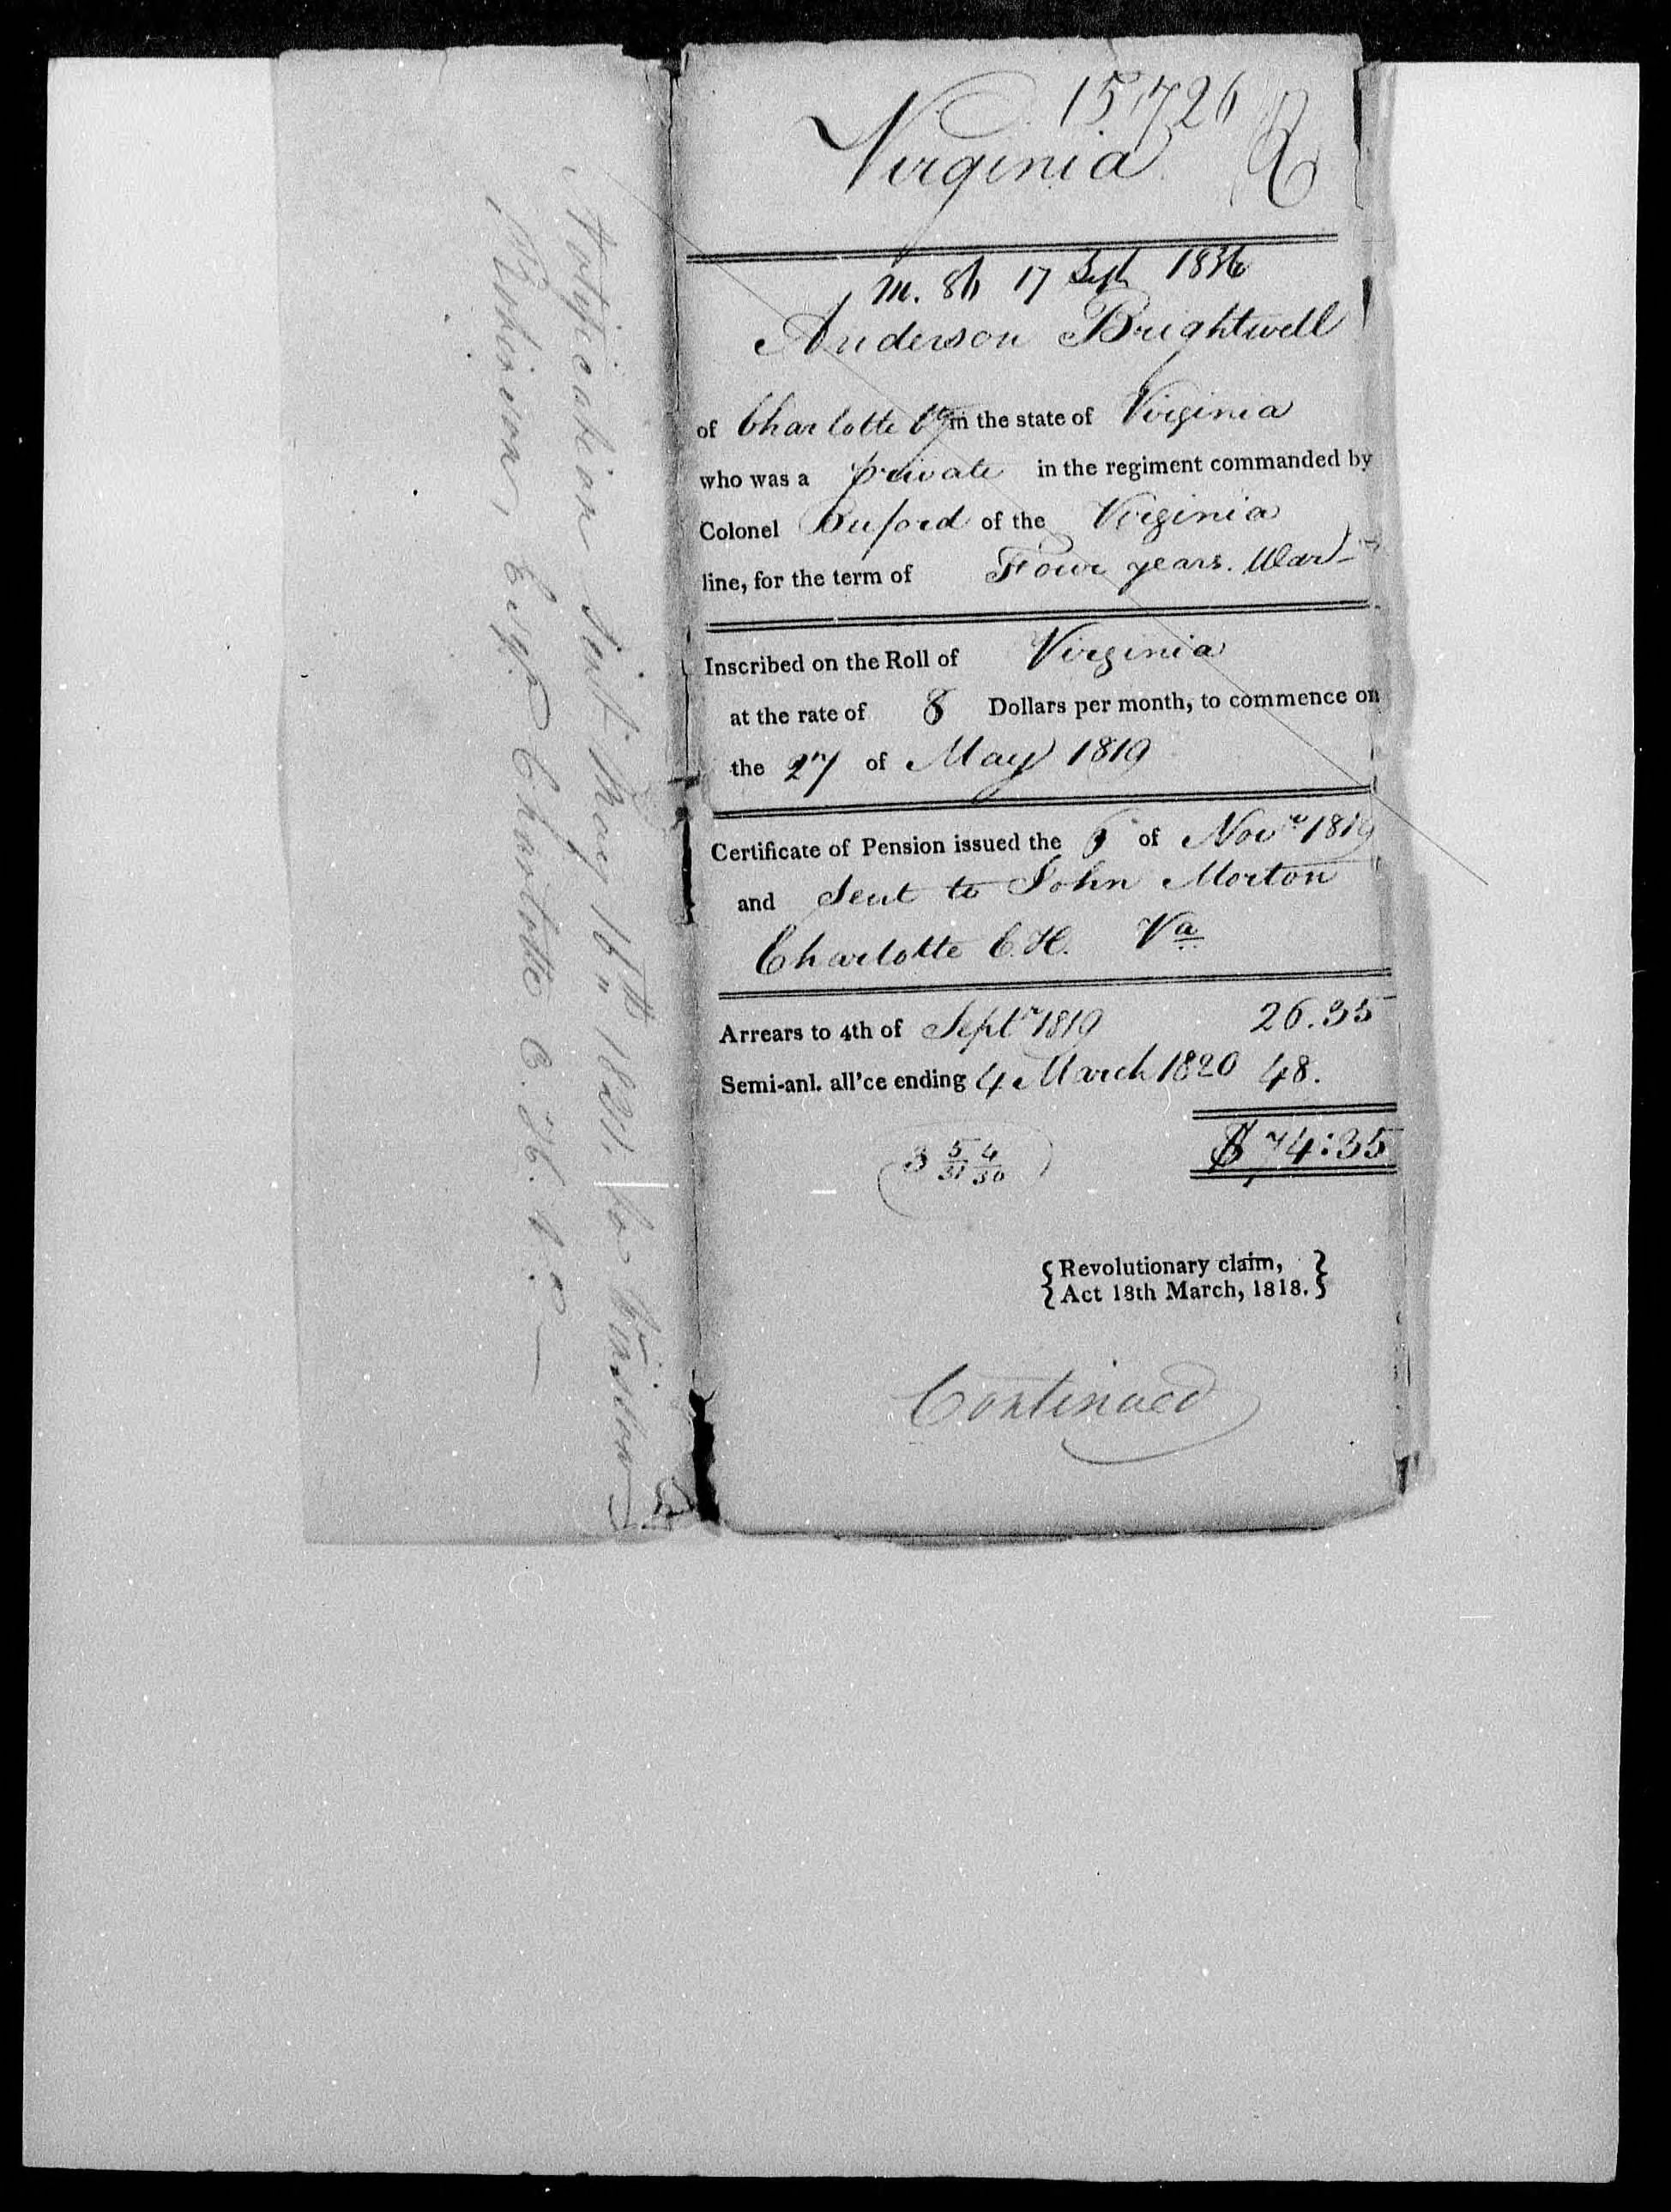 15,726
Virginia
m. 8th 17 Sept 1836
Anderson Brightwell
of Charlotte Cy in the state of Virginia
who was a private in the regiment commanded by
Colonel Buford of the Virginia
line, for the term of Four years. War
Inscribed on the Roll of Virginia
at the rate of 8 Dollars per month, to commence on
the 27 of May 1819
Certificate of Pension issued the 6 of Novr 1819
and Sent to John Morton
Charlotte C. H. Va
Arrears to 4th of Septr 1819 26.35
Semi-anl. all'ce ending 4 March 1820 48.
3 5/31 4/30 $ 74:35
{Revolutionary claim,}
{Act 18th March, 1818.}
Continued
Notification sent May 16th 1821, to
Robinson, Esqr Charlotte C. H. Va